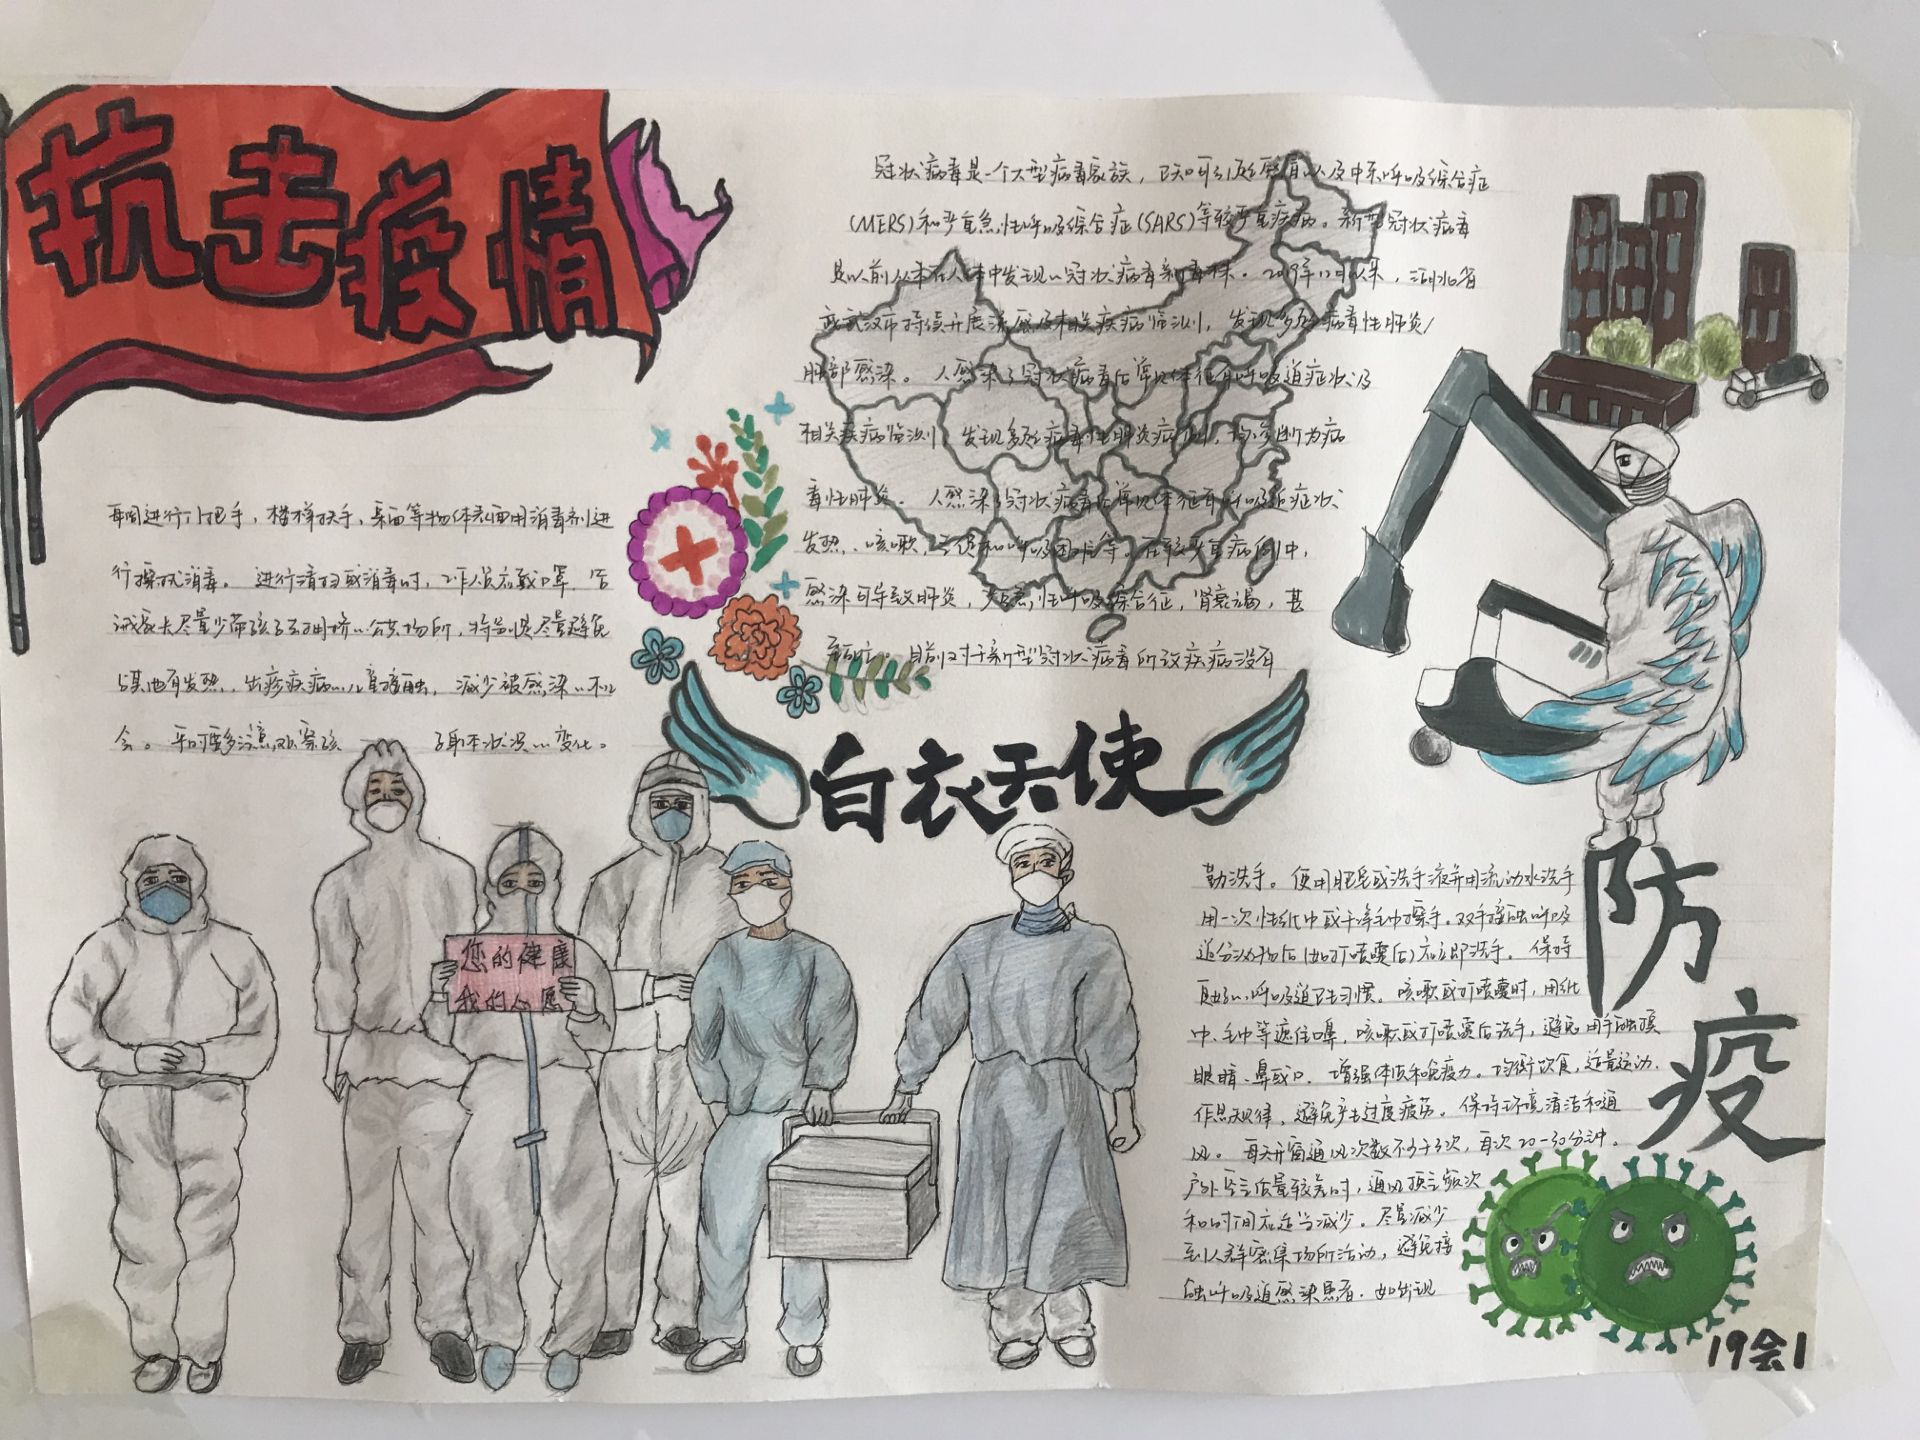 抗击疫情
冠状病毒是一个大型病毒家族，已知可引起感冒以及中东呼吸综合症
(MERS)和严重急性呼吸综合症(SARS)等较严重疾病。新型冠状病毒
是以前从未在人体中发现的冠状病毒新毒株。2019年12月以来，湖北省
武汉市持续开展流感及相关疾病监测，发现多起病毒性肺炎
肺部感染。人感染了冠状病毒后常见体征有呼吸道症状及
相关疾病监测，发现多起病毒性肺炎病例，均诊断为病
毒性肺炎。人感染了冠状病毒后常见体征有呼吸道症状、
发热、咳嗽、气促和呼吸困难等。在较严重病例中，
感染可导致肺炎，严重急性呼吸综合征，肾衰竭，甚
至死亡。目前对于新型冠状病毒所致疾病没有
每周进行门把手，楼梯扶手，桌面等物体表面用消毒剂进
行擦拭消毒。进行清扫或消毒时，工作人员应戴口罩。告
诫家长尽量少带孩子去拥挤的公共场所，特别是尽量避免
与其他有发热、出疹疾病的儿童接触，减少被感染的机
会。平时要多注意观察孩子身体状况的变化。
白衣天使
您的健康
我的心愿
防疫
勤洗手。使用肥皂或洗手液并用流动水洗手
用一次性纸巾或干净毛巾擦手。双手接触呼吸
道分泌物后(如打喷嚏后)应立即洗手。保持
良好的呼吸道卫生习惯。咳嗽或打喷嚏时，用纸
巾、毛巾等遮住口鼻，咳嗽或打喷嚏后洗手，避免用手触摸
眼睛、鼻或口。增强体质和免疫力。均衡饮食，适量运动、
作息规律，避免产生过度疲劳。保持环境清洁和通
风。每天开窗通风次数不少于3次，每次20-30分钟。
户外空气质量较差时，通风换气频次
和时间应适当减少。尽量减少
到人群密集场所活动，避免接
触呼吸道感染患者。如出现
19会1